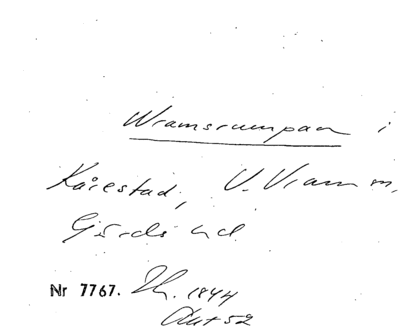 Wramsrumpan i
Kårestad, V. Vram m,
Gärds hd
Nr 7767. Th. 1844
Akt 52